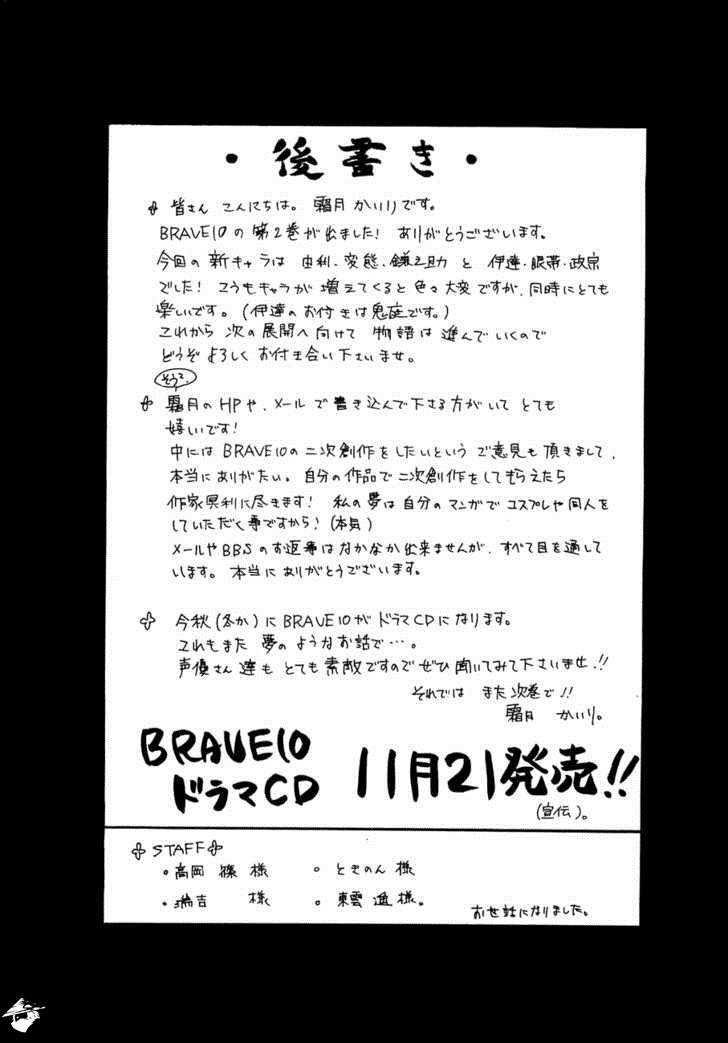 ・後書き・
皆さん こんにちは。 霜月かいりです。
BRAVE10の第2巻が出ました! ありがとうございます。
今回の新キャラは 由利・変態・鎌之助 と 伊達・眼帯・政宗
でした! こうもキャラが増えてくると色々大変ですが、同時にとても
楽しいです。(伊達のお付きは鬼庭です。)
これから次の展開へ向けて 物語は進んでいくので
どうぞよろしくお付き合い下さいませ。
そうそう
霜月のHPや、メールで書き込んで下さる方がいて とても
嬉しいです!
中にはBRAVE10の二次創作をしたいという ご意見も頂きまして、
本当にありがたい。自分の作品で二次創作をしてもらえたら
作家冥利に尽きます! 私の夢は自分のマンガでコスプレや同人を
していただく事ですから!(本気)
メールやBBSのお返事はなかなか出来ませんが、すべて目を通して
います。本当にありがとうございます。
今秋(冬か)にBRAVE10がドラマCDになります。
これもまた 夢のようなお話で…。
声優さん達も とても素敵ですのでぜひ聞いてみて下さいませ!!
それでは また次巻で!!
霜月 かいり。
BRAVE10
ドラマCD 11月21発売!!
(宣伝)。
STAFF
・高岡 様 ・ときのん 様
・瑞吉 様 ・東雲 遥 様。
お世話になりました。